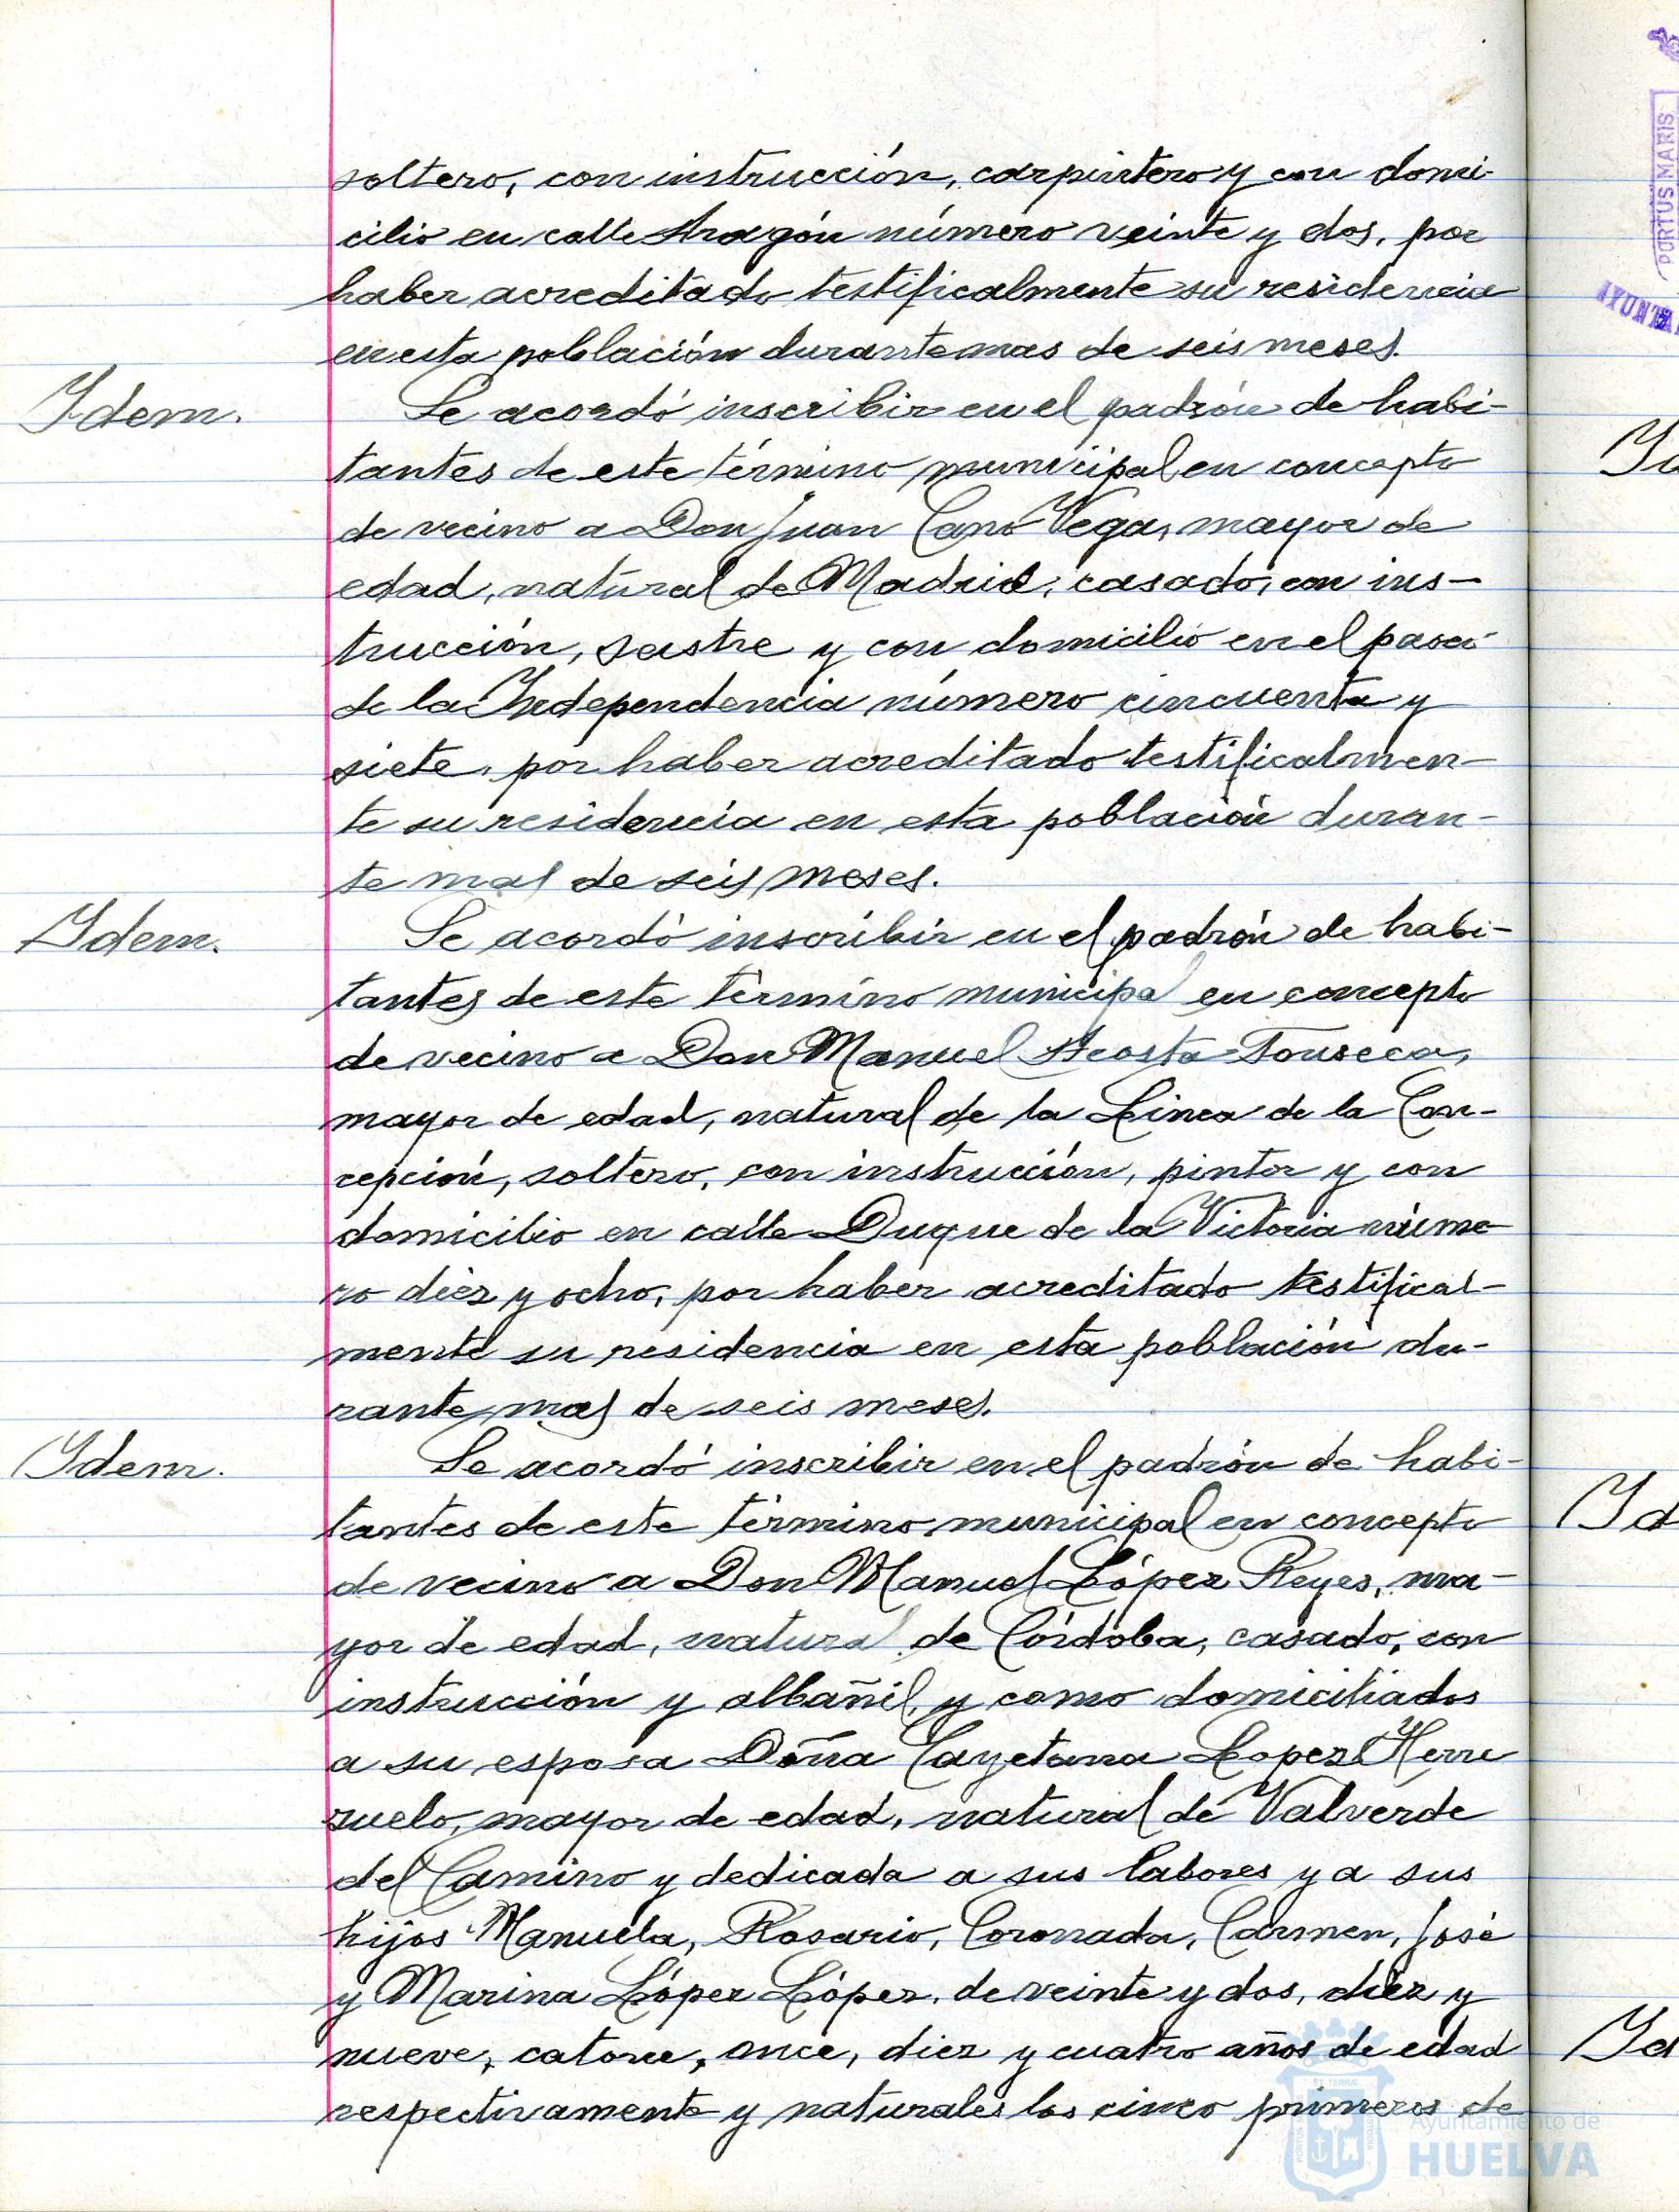 soltero, con instrucción, carpintero y con domi-
cilio en calle Aragón número veinte y dos, por
haber acreditado testificalmente su residencia
en esta población durante mas de seis meses.
Idem.
Se acordó inscribir en el padrón de habi-
tantes de este término municipal en concepto
de vecino a Don Juan Cano Vega, mayor de
edad, natural de Madrid, casado, con ins-
trucción, sastre y con domicilio en el paseo
de la Independencia número cincuenta y
siete, por haber acreditado testificalmen-
te su residencia en esta población duran-
te mas de seis meses.
Idem.
Se acordó inscribir en el padrón de habi-
tantes de este término municipal en concepto
de vecino a Don Manuel Acosta Fonseca,
mayor de edad, natural de la Linea de la Con-
cepción, soltero, con instrucción, pintor y con
domicilio en calle Duque de la Victoria núme
ro diez y ocho, por haber acreditado testifical-
mente su residencia en esta población du-
rante mas de seis meses.
Idem.
Se acordó inscribir en el padrón de habi-
tantes de este término municipal en concepto
de vecino a Don Manuel López Reyes, ma-
yor de edad, natural de Córdoba, casado, con
instrucción y albañil, y como domiciliados
a su esposa Doña Cayetana Lopez Herre
zuelo, mayor de edad, natural de Valverde
del Camino y dedicada a sus labores y a sus
hijos Manuela, Rosario, Coronada, Carmen, José
y Marina López López, de veinte y dos, diez y
nueve, catorce, once, diez y cuatro años de edad
respectivamente y naturales los cinco primeros de
PORTUS MARIS
AYUNTA
Id
Id
Ayuntamiento de
HUELVA